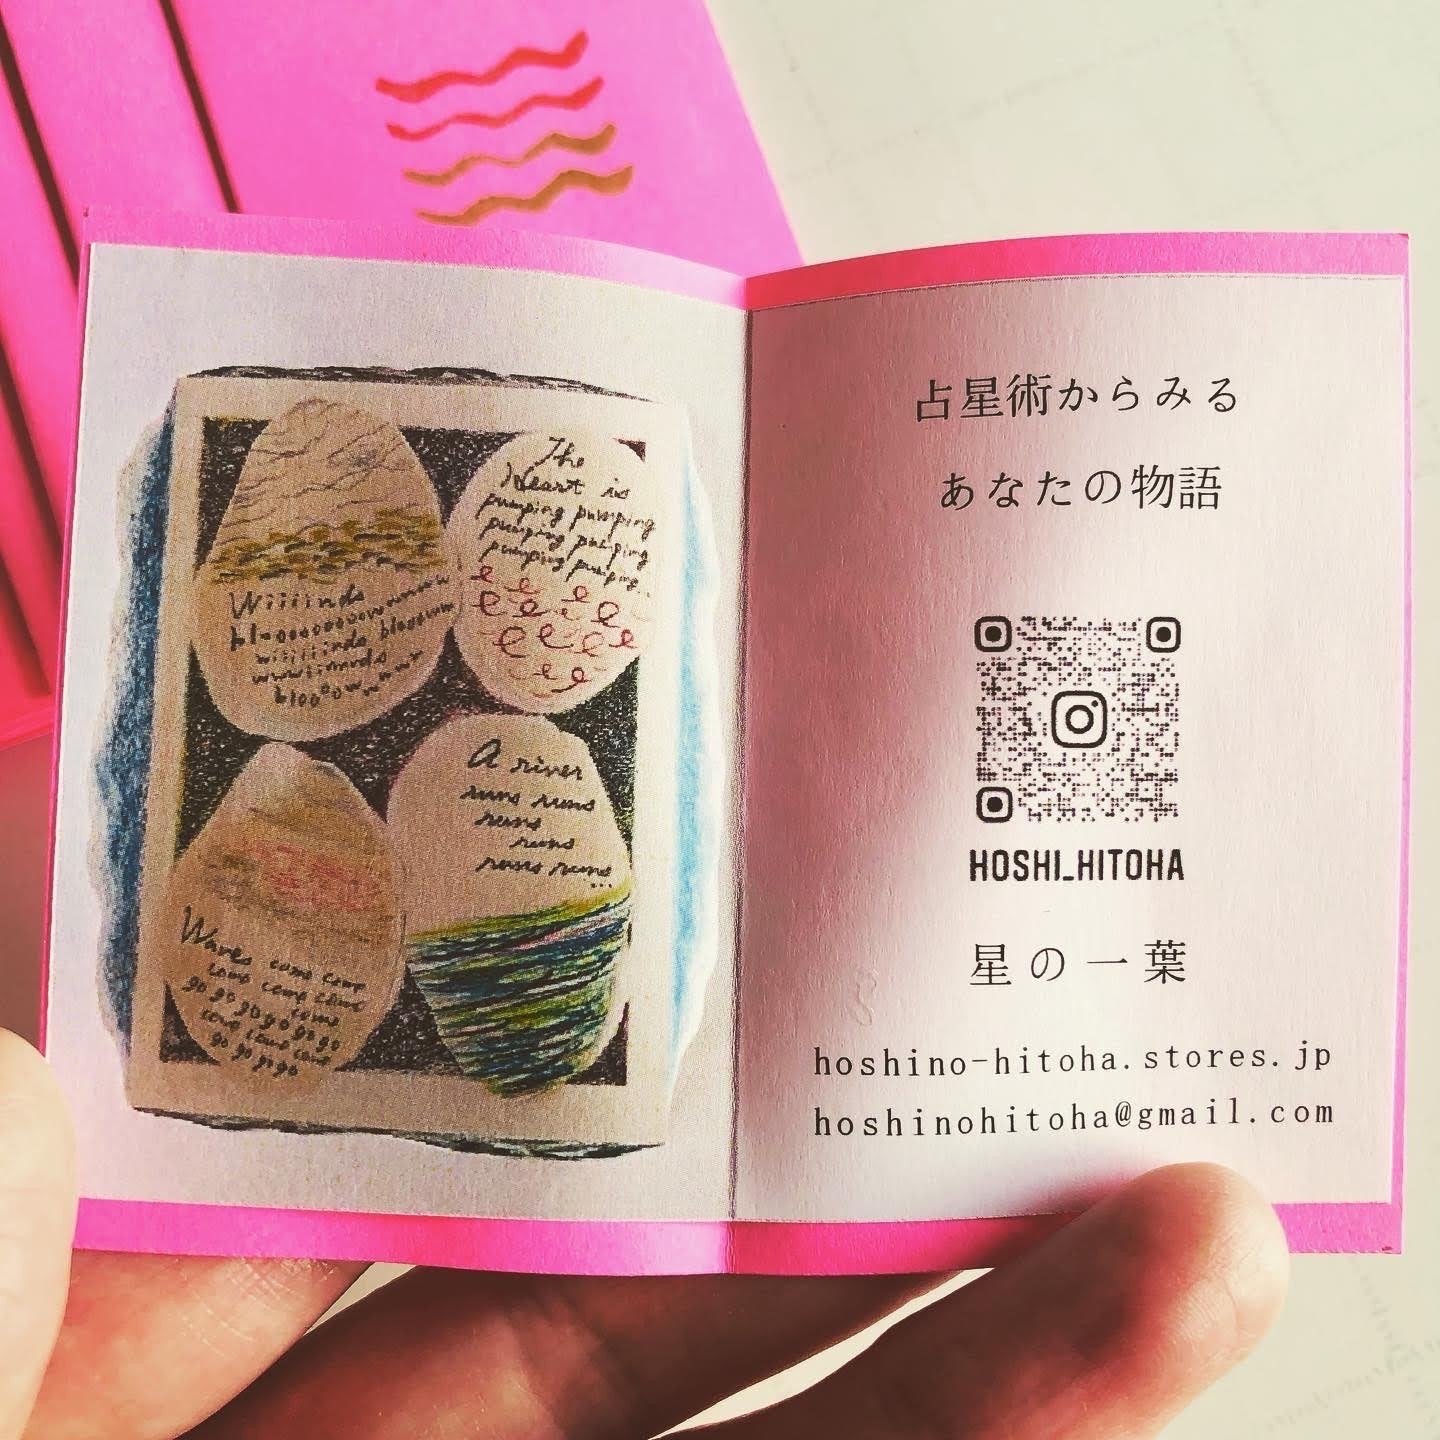 Wiiiinds
The
Heart is
pumping pumping
pumping pumping
pumping pumping...
A river
runs runs
runs
runs
runs runs
...
Waves come come
come come come
go go go go go go
go go go go
占星術からみる
あなたの物語
HOSHI_HITOHA
星の一葉
hoshino-hitoha.stores.jp
hoshinohitoha@gmail.com